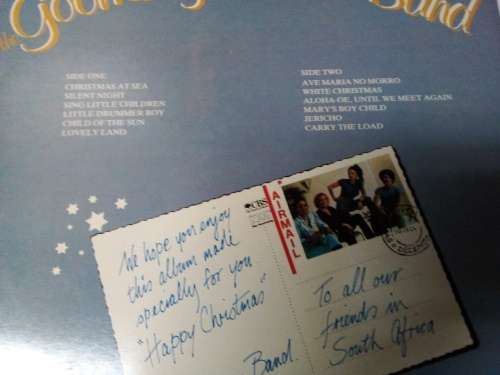 the Goom Band
SIDE ONE
CHRISTMAS AT SEA
SILENT NIGHT
SING LITTLE CHILDREN
LITTLE DRUMMER BOY
CHILD OF THE SUN
LOVELY LAND
SIDE TWO
AVE MARIA NO MORRO
WHITE CHRISTMAS
ALOHA-OE, UNTIL WE MEET AGAIN
MARY'S BOY CHILD
JERICHO
CARRY THE LOAD
We hope you enjoy
this album made
specially for you
"Happy Christmas"
Band.
CBS
AIRMAIL
To all our
friends in
South Africa